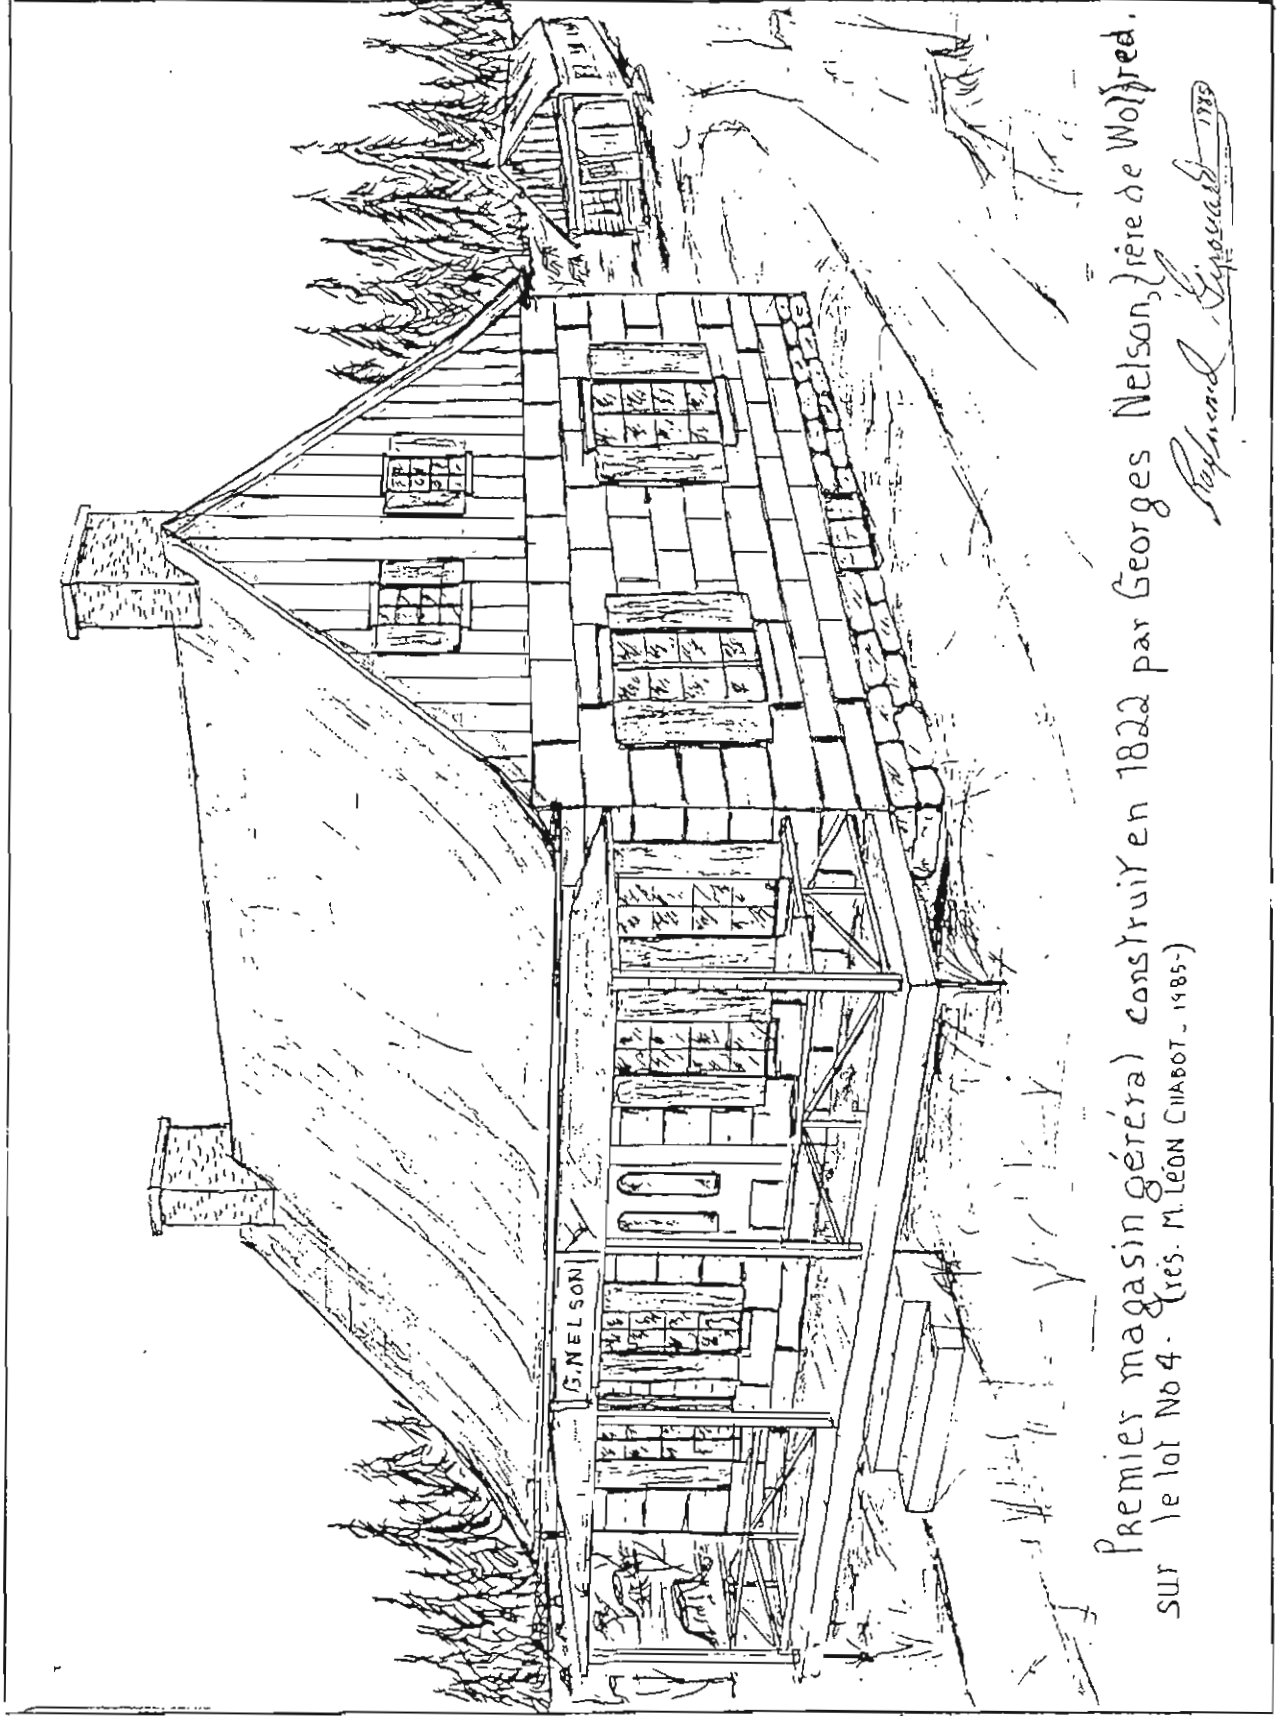 G. NELSON
Premier magasin général construit en 1822 par Georges Nelson, frère de Wolfred.
sur le lot No 4. (rés. M. LÉON CHABOT_ 1985-)
Raymond Girouard 1985